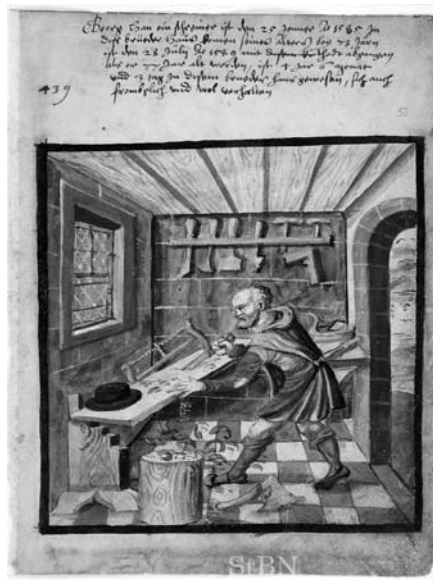 Georg Han ein schreiner ist den 25 Jenner Ao 1585 In
diß brueder Haus komen seines Alters bey 73 Jarn
ist den 28 Julij Ao 1589 mit abgangen
als er 77 Jar alt worden, ist 4 Jar 6 monat
und 3 tag in disem brueder haus gewesen, sich auch
439
und wol verhalten
50
StBN